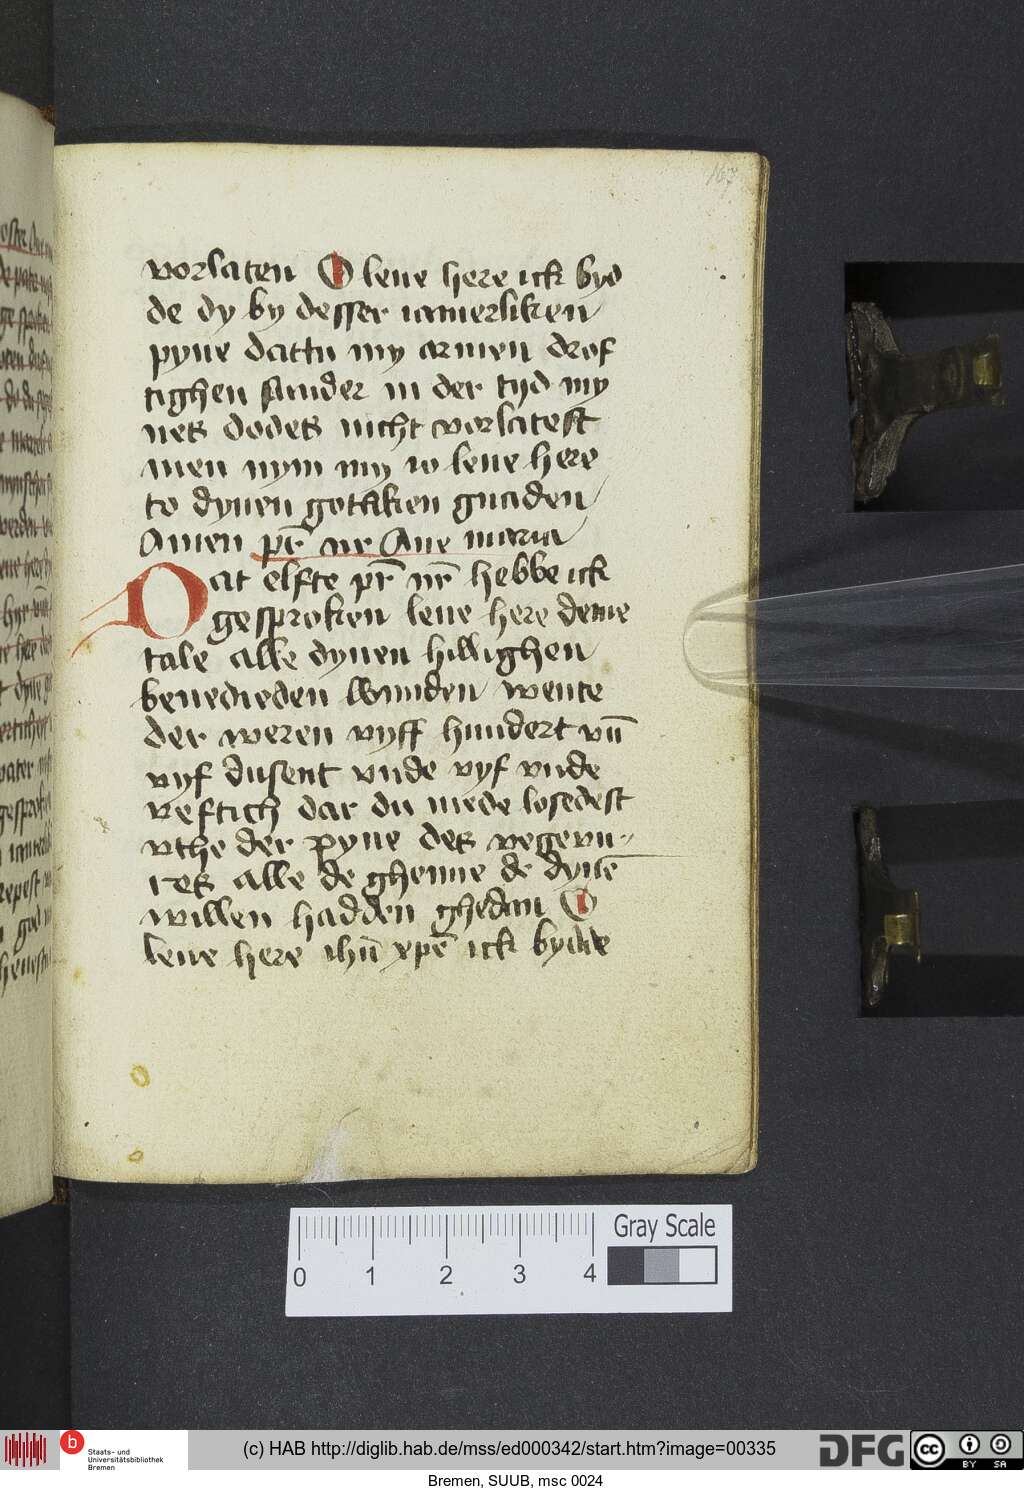 167
vorlaten O leue here ick byd
de dy by desser iamerliken
pyne dattu my armen drof
tighen sunder in der tyd my
nes dodes nicht vorlatest
men nym my io leue here
to dynen gotliken gnaden
Amen pr̄ nr Aue maria
Dat elfte pr̄ nr̄ hebbe ick
gesproken leue here deme
tale alle dynen hillighen
benedieden wunden wente
der weren vyff hundert vn̄
vyf dusent vnde vyf vnde
veftich dar du mede losedest
vthe der pyne des vegevu-
res alle de ghenne de dynē
willen hadden ghedan O
leue here ihū xpē ick bydde
0 1 2 3 4 Gray Scale
b Staats- und
Universitätsbibliothek
Bremen
(c) HAB http://diglib.hab.de/mss/ed000342/start.htm?image=00335
DFG
cc BY SA
Bremen, SUUB, msc 0024